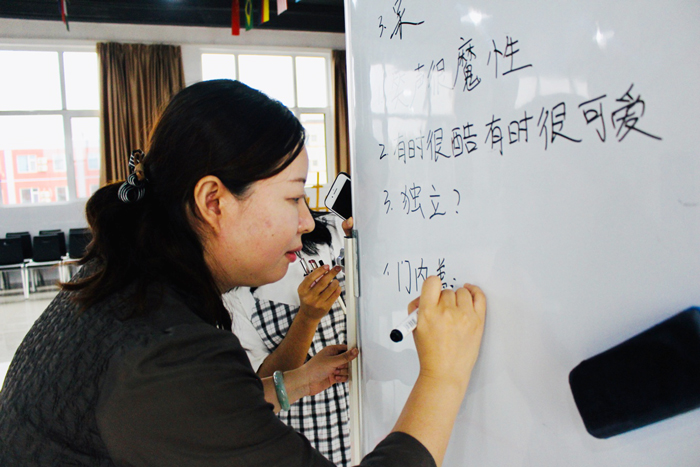 3.呆
很魔性
2.有时很酷有时很可爱
3.独立?
们内